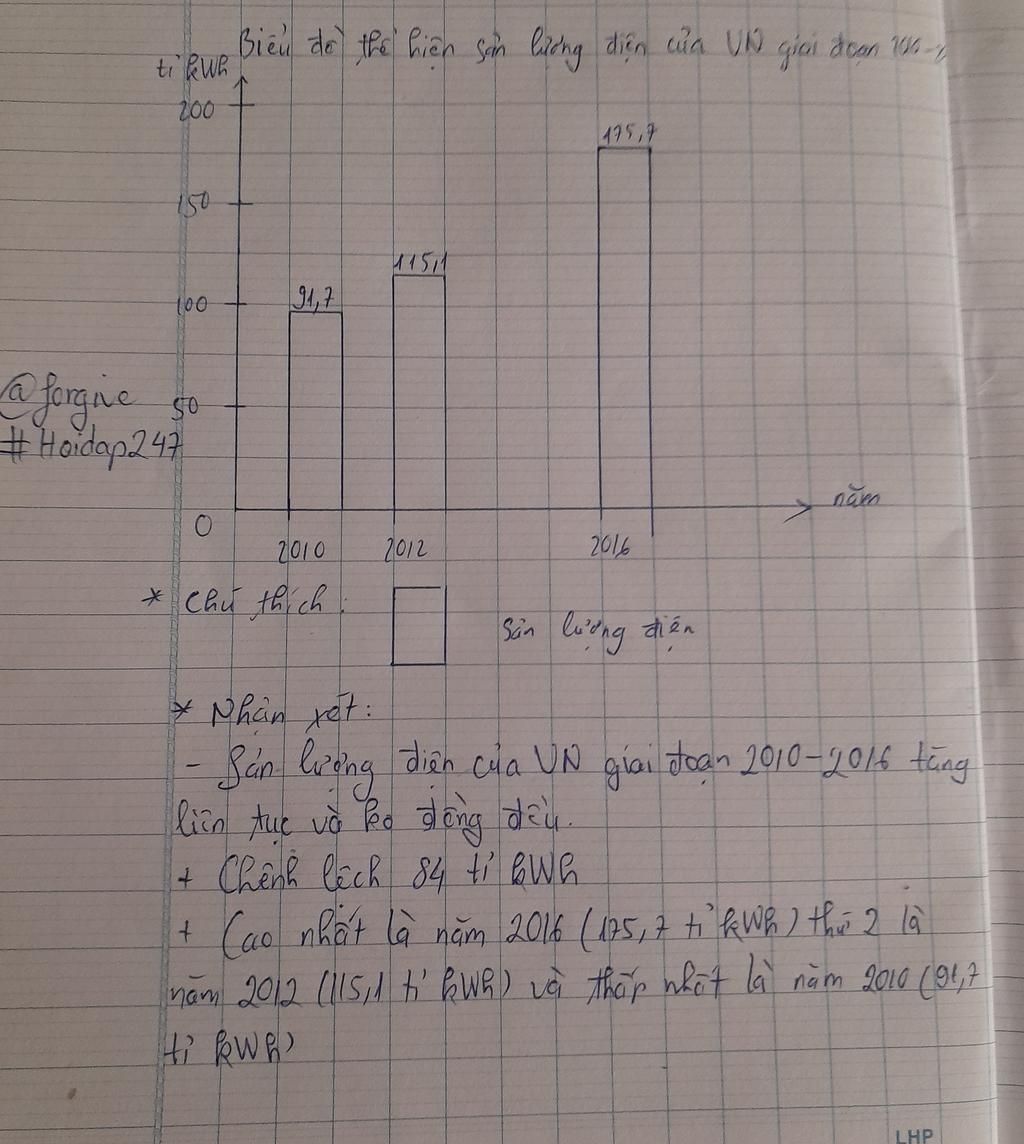 Biểu đồ thể hiện sản lượng điện của VN giai đoạn
tỉ kWh
200
175,7
150
115,1
100
91,7
@forgive
50
#Hoidap247
năm
0
2010 2012 2016
* Chú thích:
Sản lượng điện
* Nhận xét:
- Sản lượng điện của VN giai đoạn 2010-2016 tăng
liên tục và ko đồng đều.
+ Chênh lệch 84 tỉ kWh
+ Cao nhất là năm 2016 (175,7 tỉ kWh) thứ 2 là
năm 2012 (115,1 tỉ kWh) và thấp nhất là năm 2010 (91,7
tỉ kWh)
LHP